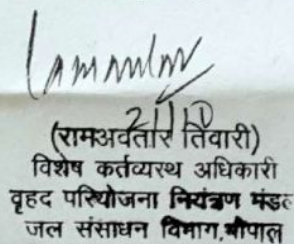 (रामअवतार तिवारी)
विशेष कर्तव्यस्थ अधिकारी
वृहद परियोजना नियंत्रण मंडल
जल संसाधन विभाग,भोपाल